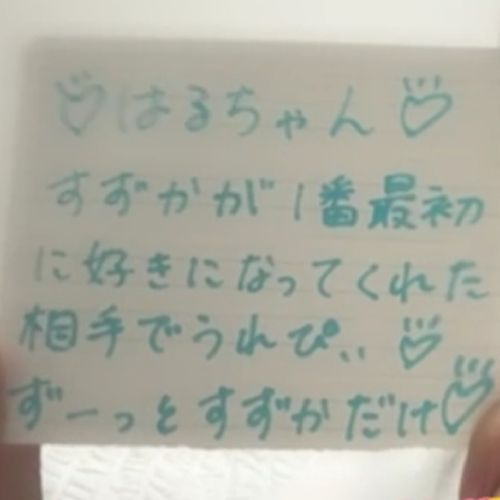 ♡はるちゃん♡
すずかが1番最初
に好きになってくれた
相手でうれぴぃ♡
ずーっとすずかだけ♡